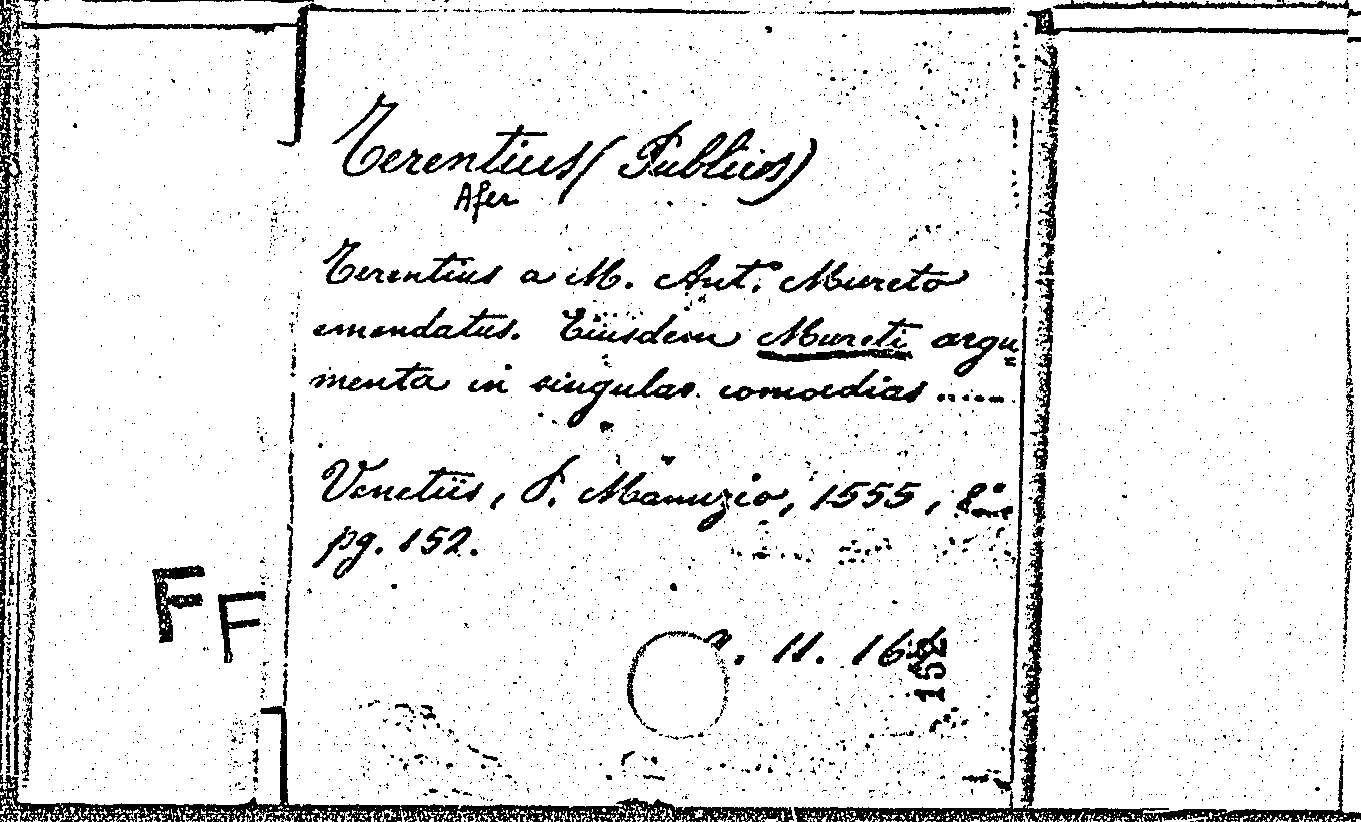 Terentius (Publius)
Afer
Terentius a M. Ant.º Mureto
emendatus. Eiusdem Mureti argu
menta in singulas comoedias .....
Venetiis, P. Manuzio, 1555, 8º
pg. 152.
11. 16
152
FF